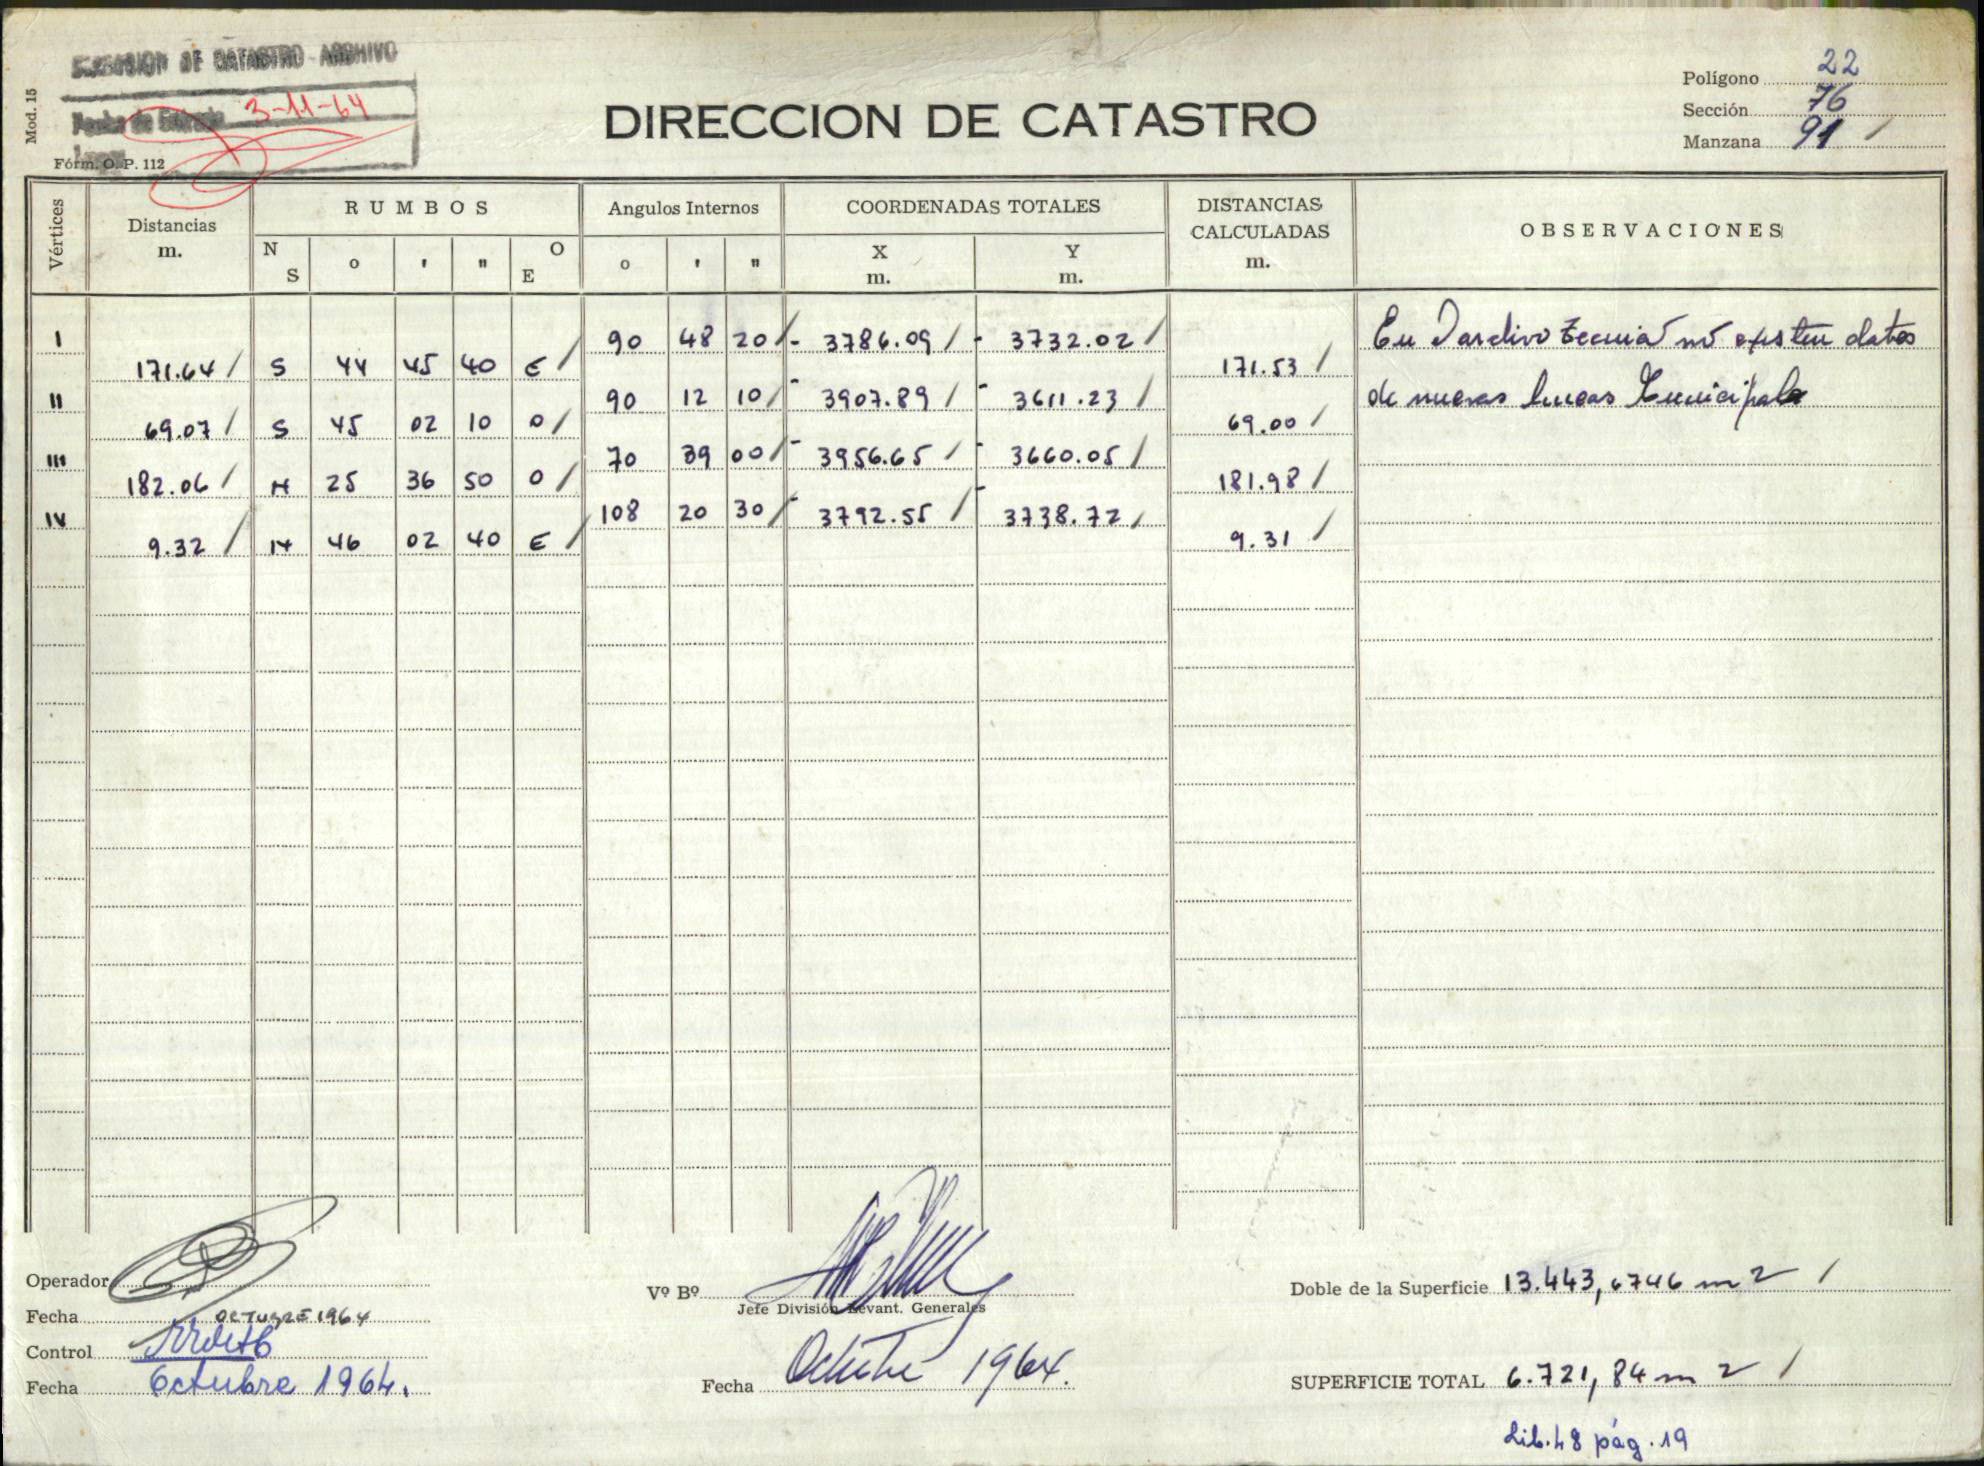 SUBDIVISION DE CATASTRO - ARCHIVO
Fecha de Entrada 3-11-64
Mod. 15
Fórm. O. P. 112
DIRECCION DE CATASTRO
Polígono 22
Sección 76
Manzana 91 /
Vértices
Distancias m.
RUMBOS
N S o ' " O E
Angulos Internos
o ' "
COORDENADAS TOTALES
X m. Y m.
DISTANCIAS CALCULADAS m.
OBSERVACIONES
I 90 48 20 / - 3786.09 / - 3732.02 /
171.64 / S 44 45 40 E / 171.53 /
II 90 12 10 / - 3907.89 / - 3611.23 /
69.07 / S 45 02 10 O / 69.00 /
III 70 39 00 / - 3956.65 / - 3660.05 /
182.06 / N 25 36 50 O / 181.98 /
IV 108 20 30 / - 3792.55 / - 3738.72 /
9.32 / N 46 02 40 E / 9.31 /
existen datos
de nuevas lineas Municipales
Operador
Fecha OCTUBRE 1964
Control
Fecha Octubre 1964.
Vº Bº
Jefe División Levant. Generales
Fecha Octubre 1964.
Doble de la Superficie 13.443,6746 m2 /
SUPERFICIE TOTAL 6.721,84 m2 /
Lib. 48 pág. 19